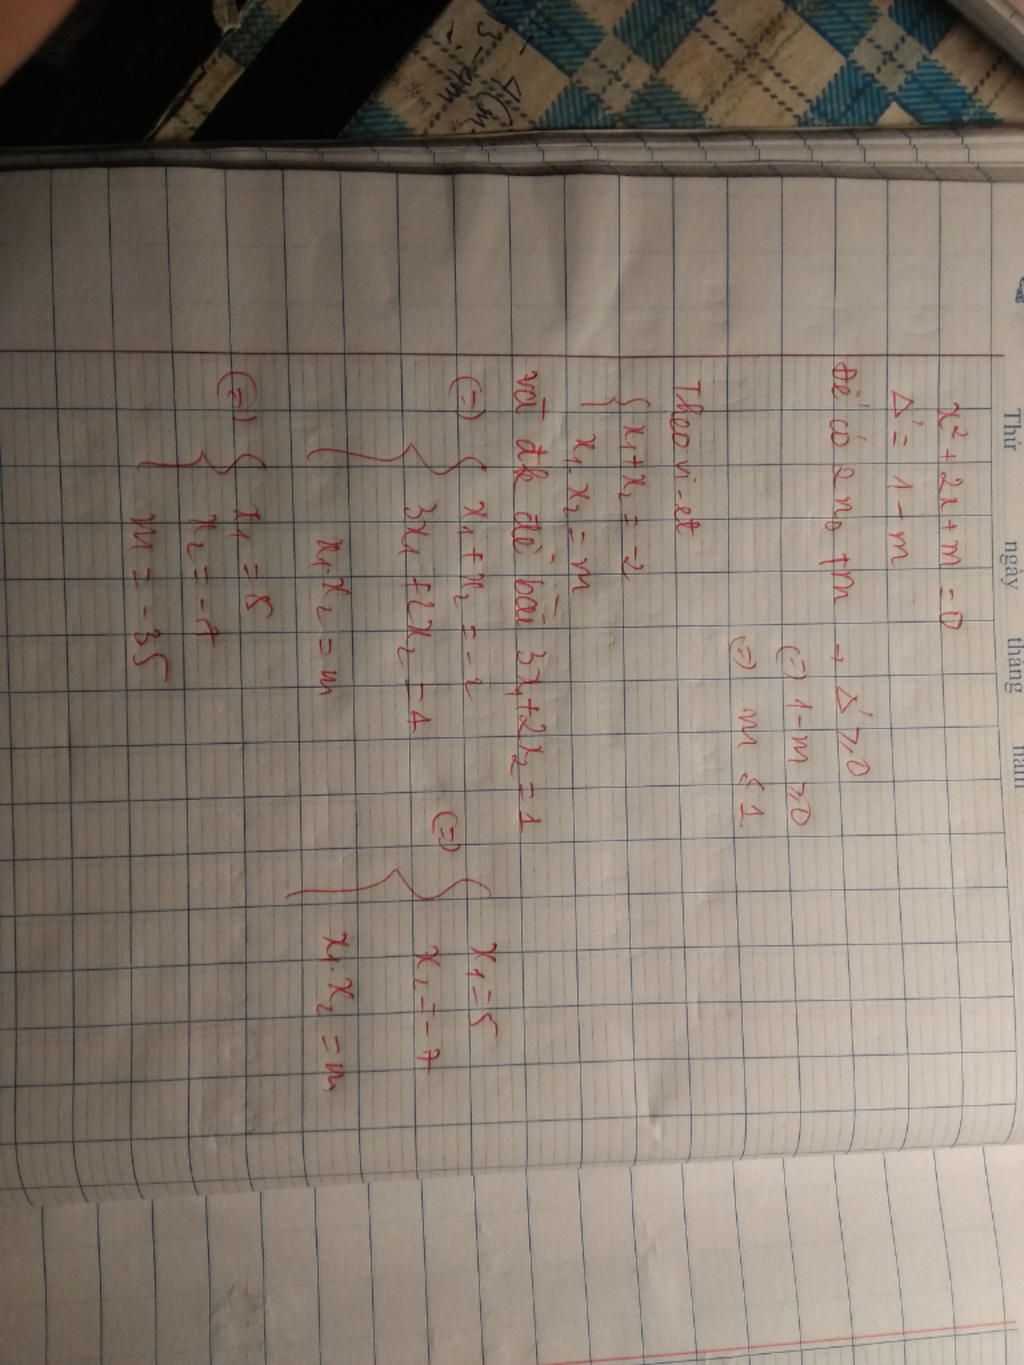 Thứ ngày tháng năm
x² + 2x + m = 0
Δ' = 1 - m
Để có 2 n₀ pm → Δ' ≥ 0
(=) 1 - m ≥ 0
(=) m ≤ 1
Theo vi-et
{ x₁ + x₂ = -2
x₁ . x₂ = m
và đk đề bài 3x₁ + 2x₂ = 1
(=) { x₁ + x₂ = -2
3x₁ + 2x₂ = 1
x₁ . x₂ = m
(=) { x₁ = 5
x₂ = -7
x₁ . x₂ = m
(=) { x₁ = 5
x₂ = -7
m = -35